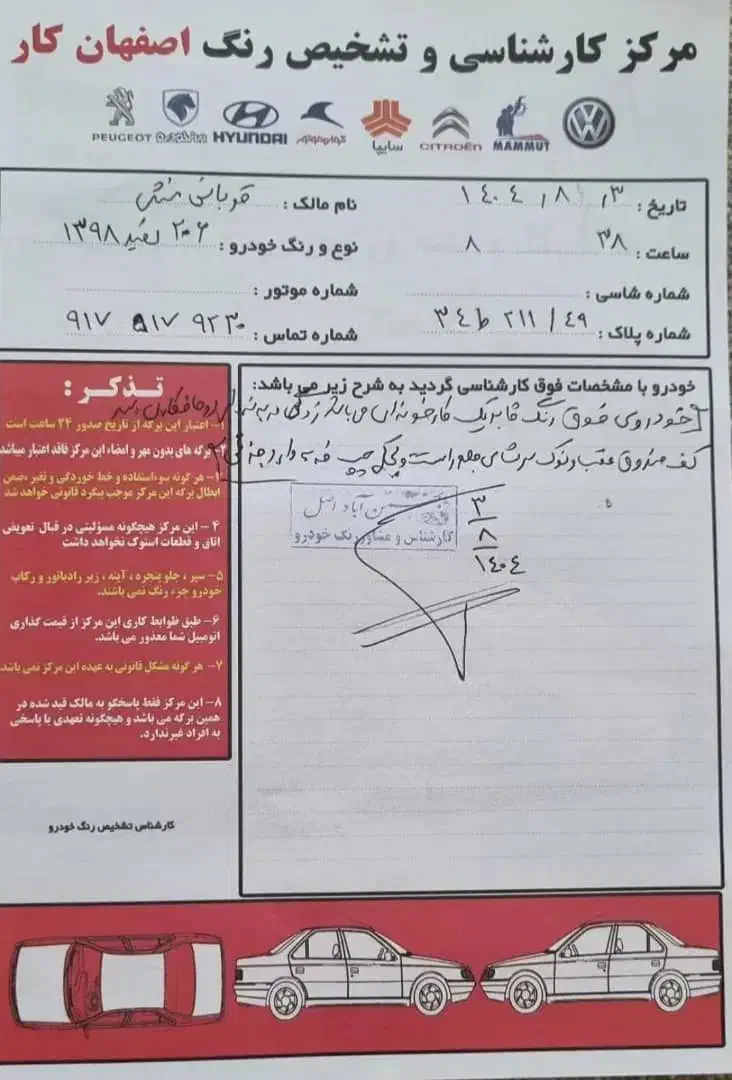 مرکز کارشناسی و تشخیص رنگ اصفهان کار
PEUGEOT HYUNDAI سایپا CITROËN MAMMUT
تاریخ : ۱۴۰۴/۸/۳
نام مالک :
ساعت : ۸ ۳۸
نوع و رنگ خودرو : ۲۰۶ سفید ۱۳۹۸
شماره شاسی :
شماره موتور :
شماره پلاک : ۳۴ ط ۲۱۱ / ۴۹
شماره تماس : ۹۱۷ ۵۱۷ ۹۲۳۰
خودرو با مشخصات فوق کارشناسی گردید به شرح زیر می باشد :
خودروی فوق رنگ
کف صندوق عقب و نوک
آباد اصل
کارشناس و مشاور رنگ خودرو
۳
۸
۱۴۰۴
تذکر :
۱- اعتبار این برگه از تاریخ صدور ۲۴ ساعت است
برگه های بدون مهر و امضاء این مرکز فاقد اعتبار میباشد
۳- هر گونه سوءاستفاده و خط خوردگی و تغیر ،ضمن
ابطال برگه این مرکز موجب پیگرد قانونی خواهد شد
۴- این مرکز هیچگونه مسؤلیتی در قبال تعویض
اتاق و قطعات استوک نخواهد داشت
۵- سپر ، جلو پنجره ، آینه ، زیر رادیاتور و رکاب
خودرو جزء رنگ نمی باشند.
۶- طبق ظوابط کاری این مرکز از قیمت گذاری
اتومبیل شما معذور می باشد.
۷- هر گونه مشکل قانونی به عهده این مرکز نمی باشد
۸- این مرکز فقط پاسخگو به مالک قید شده در
همین برگه می باشد و هیچگونه تعهدی یا پاسخی
به افراد غیرندارد.
کارشناس تشخیص رنگ خودرو